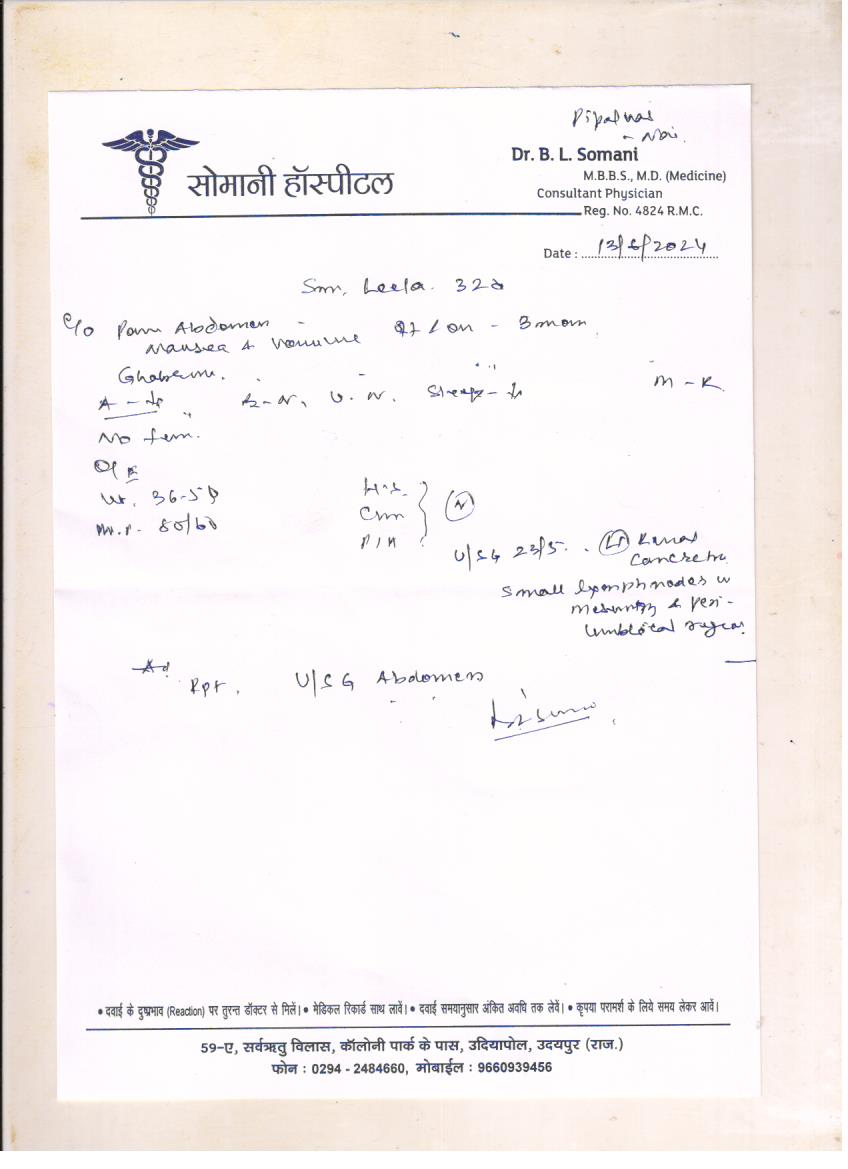 Pipalwas
- Nai.
सोमानी हॉस्पीटल
Dr. B. L. Somani
M.B.B.S., M.D. (Medicine)
Consultant Physician
Reg. No. 4824 R.M.C.
Date : 13/6/2024
Smt. Leela. 32
C/o Pain Abdomen
Nausea & on - 3 mon
A - B-N, U-N. Sleep - M - R
No
O/E
Wt. 36-5
80/60
H.S.
CNS } N
P/A
U/SG 23/5. Lt Renal
Concretn
Small lymphnodes in
mesentry & Peri-
umblical region.
Ad
Rpt. U/SG Abdomen
• दवाई के दुष्प्रभाव (Reaction) पर तुरन्त डॉक्टर से मिलें। • मेडिकल रिकार्ड साथ लावें। • दवाई समयानुसार अंकित अवधि तक लेवें। • कृपया परामर्श के लिये समय लेकर आवें।
59-ए, सर्वऋतु विलास, कॉलोनी पार्क के पास, उदियापोल, उदयपुर (राज.)
फोन : 0294 - 2484660, मोबाईल : 9660939456